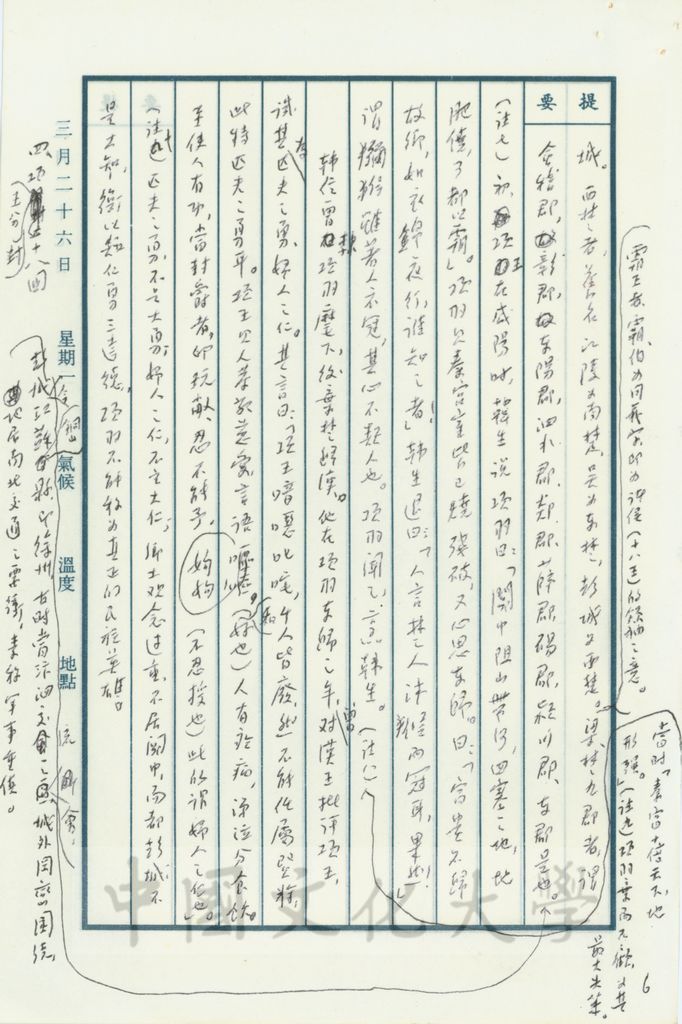 霸王者，霸、伯为同義字，即为諸侯（十八王）的領袖之意。
當时「秦富十倍天下，地
形强。」（註九）項羽棄而不顧，为其
最大失策。
6
提
要
城。西楚者，舊名江陵为南楚，吳为東楚，彭城为西楚。梁楚之九郡者，謂
會稽郡，故鄣郡，故東陽郡，泗水郡，郯郡，薛郡，碭郡，潁川郡，東郡是也。
（註七）初，項王在咸陽时，韓生說項羽曰：「關中阻山帶河，四塞之地，地
肥饒，可都以霸」。項羽見秦宮室皆已燒殘破，又心思東歸。曰：「富貴不歸
故鄉，如衣錦夜行，誰知之者！」韓生退曰：「人言楚人沐猴而冠耳，果然！」
謂獼猴雖著人衣冠，其心不類人也。項羽聞之，烹韓生。（註八）
韓信曾隸項羽麾下，後棄楚歸漢。他在項羽東歸之年，曾对漢王批評項王，
譏其有匹夫之勇，婦人之仁。其言曰：「項王喑噁叱咤，千人皆廢，然不能任屬賢將，
此特匹夫之勇耳。項王見人恭敬慈愛，言語嘔嘔（和好也）人有疾病，涕泣分食飲。
至使人有功，當封爵者，印玩敝，忍不能予，（不忍授也）此所謂婦人之仁也」。
姁姁
（註十）匹夫之勇，不是大勇；婦人之仁，不是大仁；鄉土观念过重，不居關中，而都彭城，不
是大知，衡以知仁勇三達德，項羽不能称为真正的民族英雄。
三月二十六日 星期一 氣候 溫度 地點
四、項羽分十八國
（主分封）
彭城，江蘇銅山縣，即徐州，古时當汴泗交流之區，城外岡巒圍繞，
地居南北交通之要衝，素称軍事重鎮。
流會，
中國文化大學